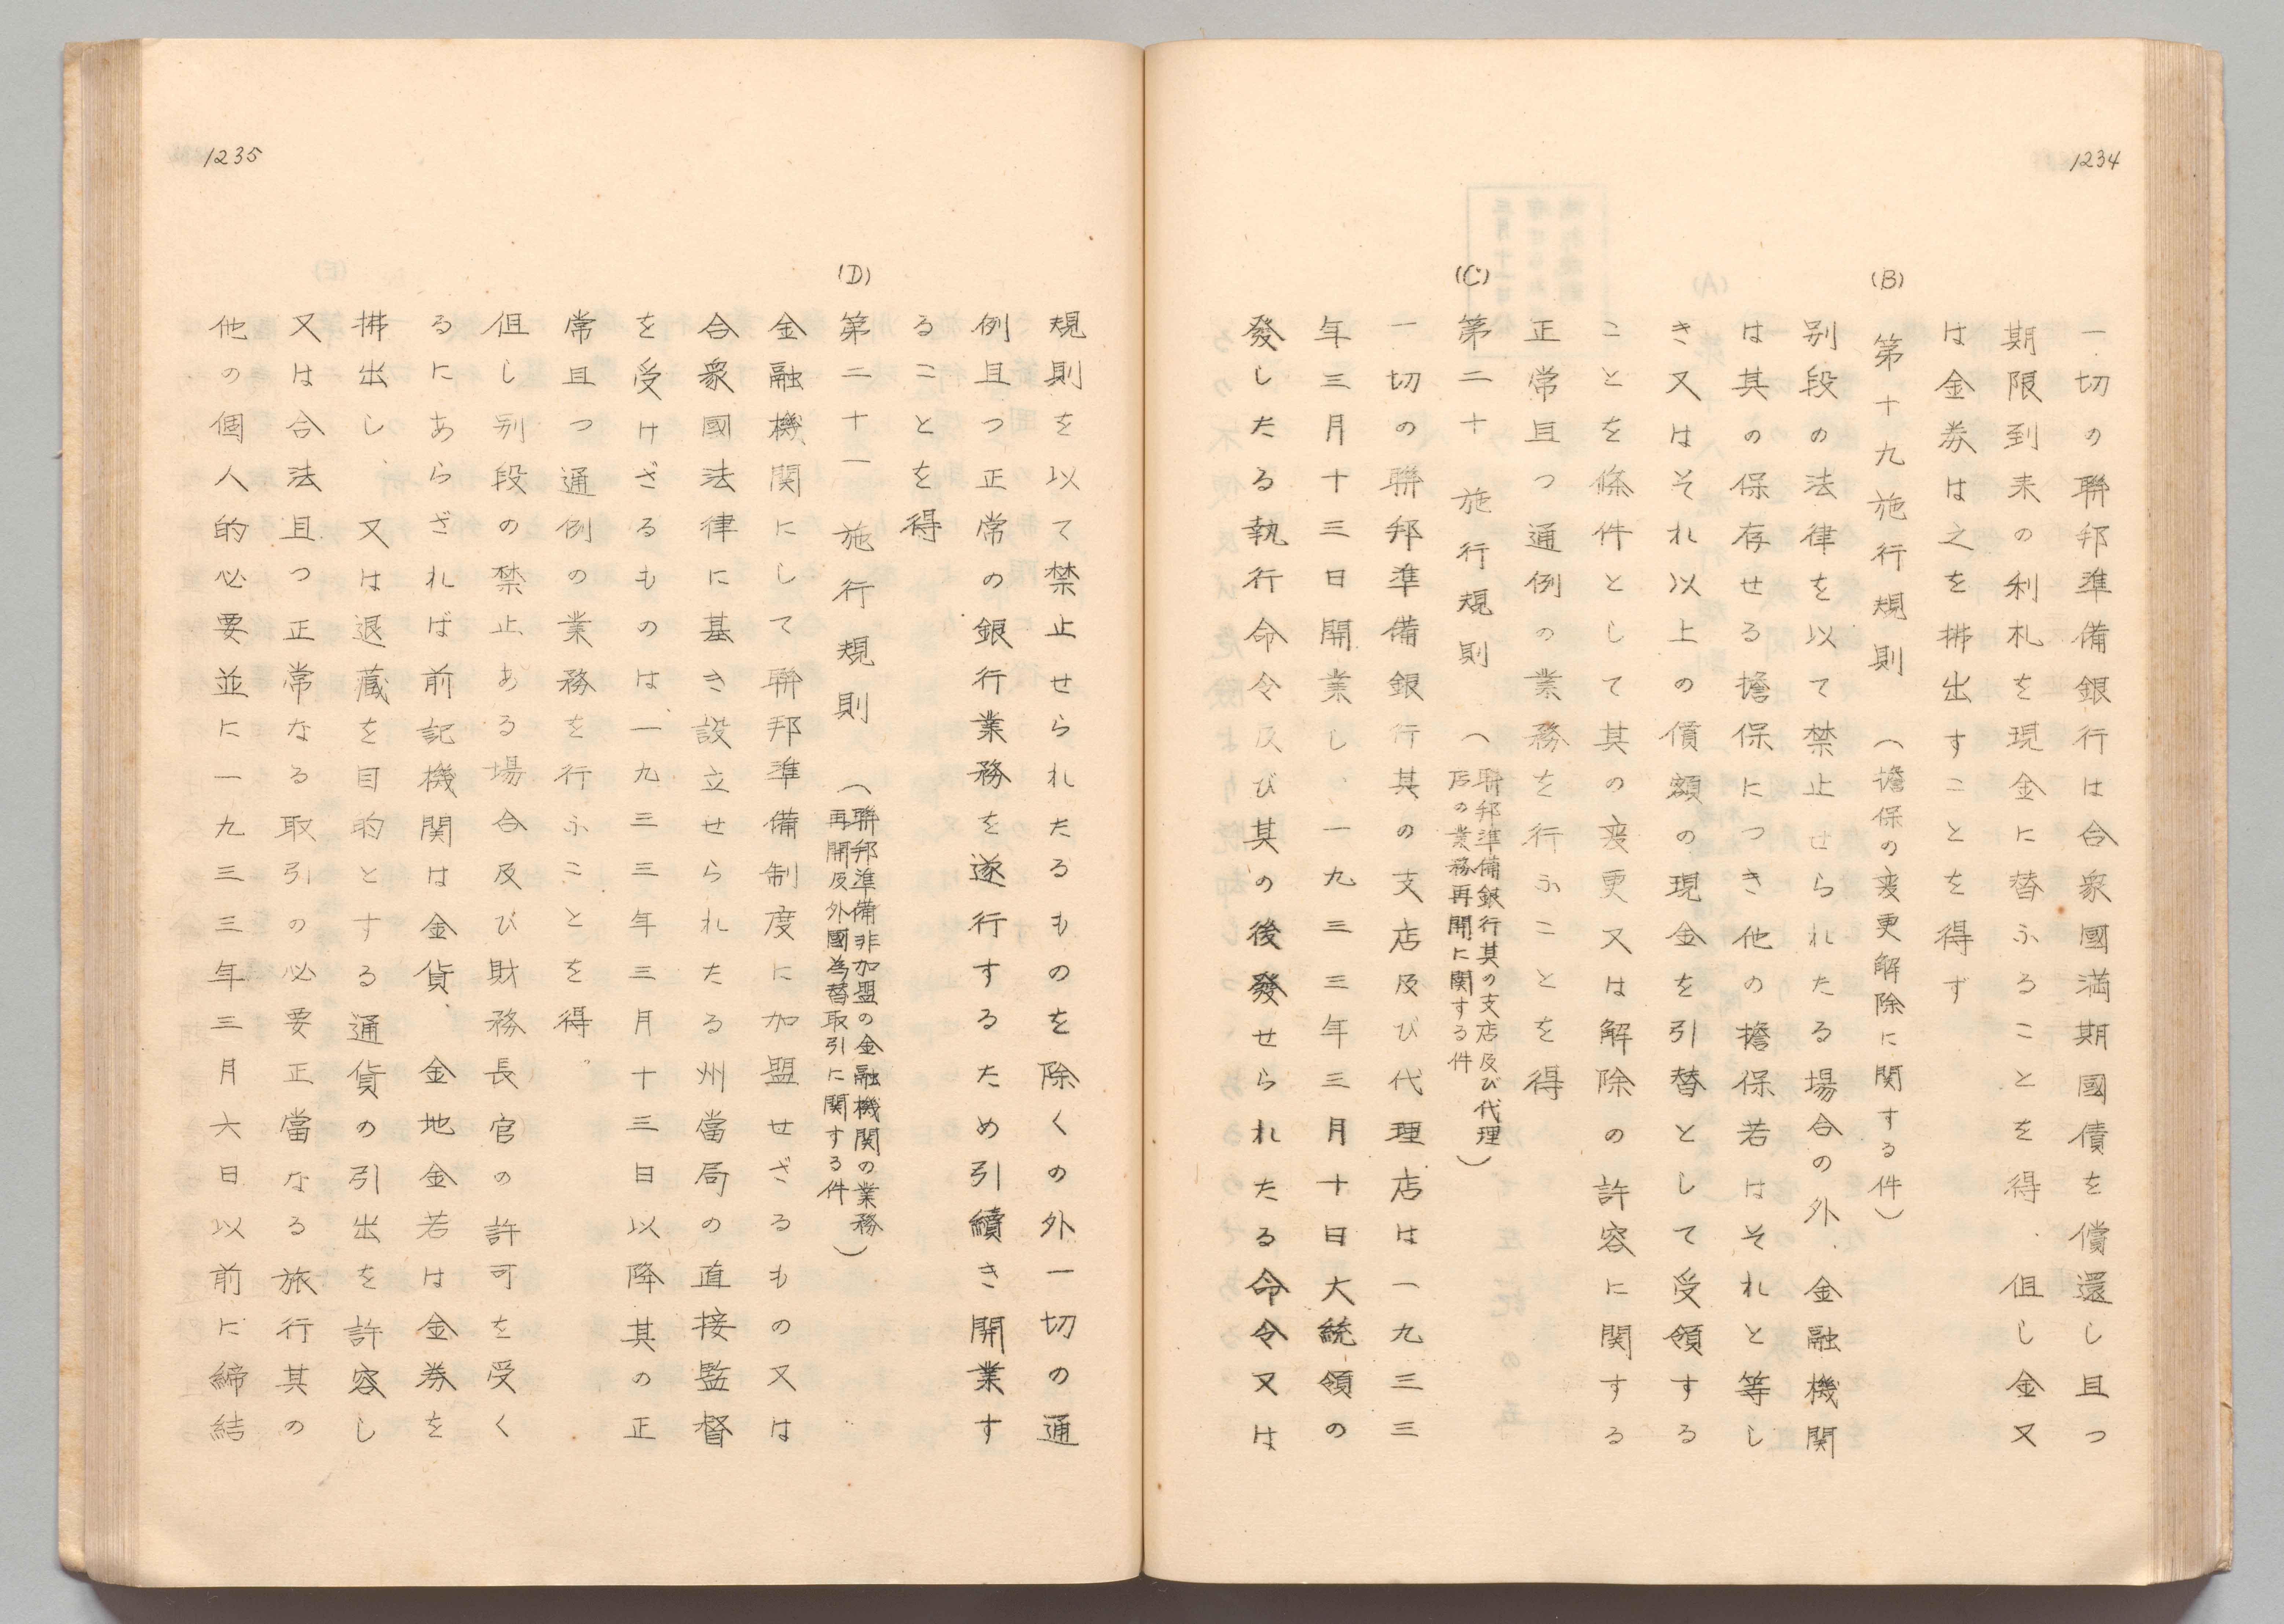 1234
一切の聯邦準備銀行は合衆國満期國債を償還し且つ
期限到来の利札を現金に替ふることを得、但し金又
は金券は之を拂出すことを得ず
(B)
第十九施行規則　（擔保の変更解除に関する件）
別段の法律を以て禁止せられたる場合の外、金融機関
は其の保存せる擔保につき他の擔保若はそれと等し
き又はそれ以上の價額の現金を引替として受領する
ことを條件として其の変更又は解除の許容に関する
正常且つ通例の業務を行ふことを得
(C)
第二十　施行規則　（聯邦準備銀行其の支店及び代理
店の業務再開に関する件）
一切の聯邦準備銀行其の支店及び代理店は一九三三
年三月十三日開業し、一九三三年三月十日大統領の
發したる執行命令及び其の後發せられたる命令又は
1235
規則を以て禁止せられたるものを除くの外一切の通
例且つ正常の銀行業務を遂行するため引續き開業す
ることを得
(D)
第二十一　施行規則　（聯邦準備非加盟の金融機関の業務
再開及外國為替取引に関する件）
金融機関にして聯邦準備制度に加盟せざるもの又は
合衆國法律に基き設立せられたる州當局の直接監督
を受けざるものは一九三三年三月十三日以降其の正
常且つ通例の業務を行ふことを得。
但し别段の禁止ある場合及び財務長官の許可を受く
るにあらざれば前記機関は金貨、金地金若は金券を
拂出し、又は退蔵を目的とする通貨の引出を許容し
又は合法且つ正常なる取引の必要正當なる旅行其の
他の個人的必要並に一九三三年三月六日以前に締結